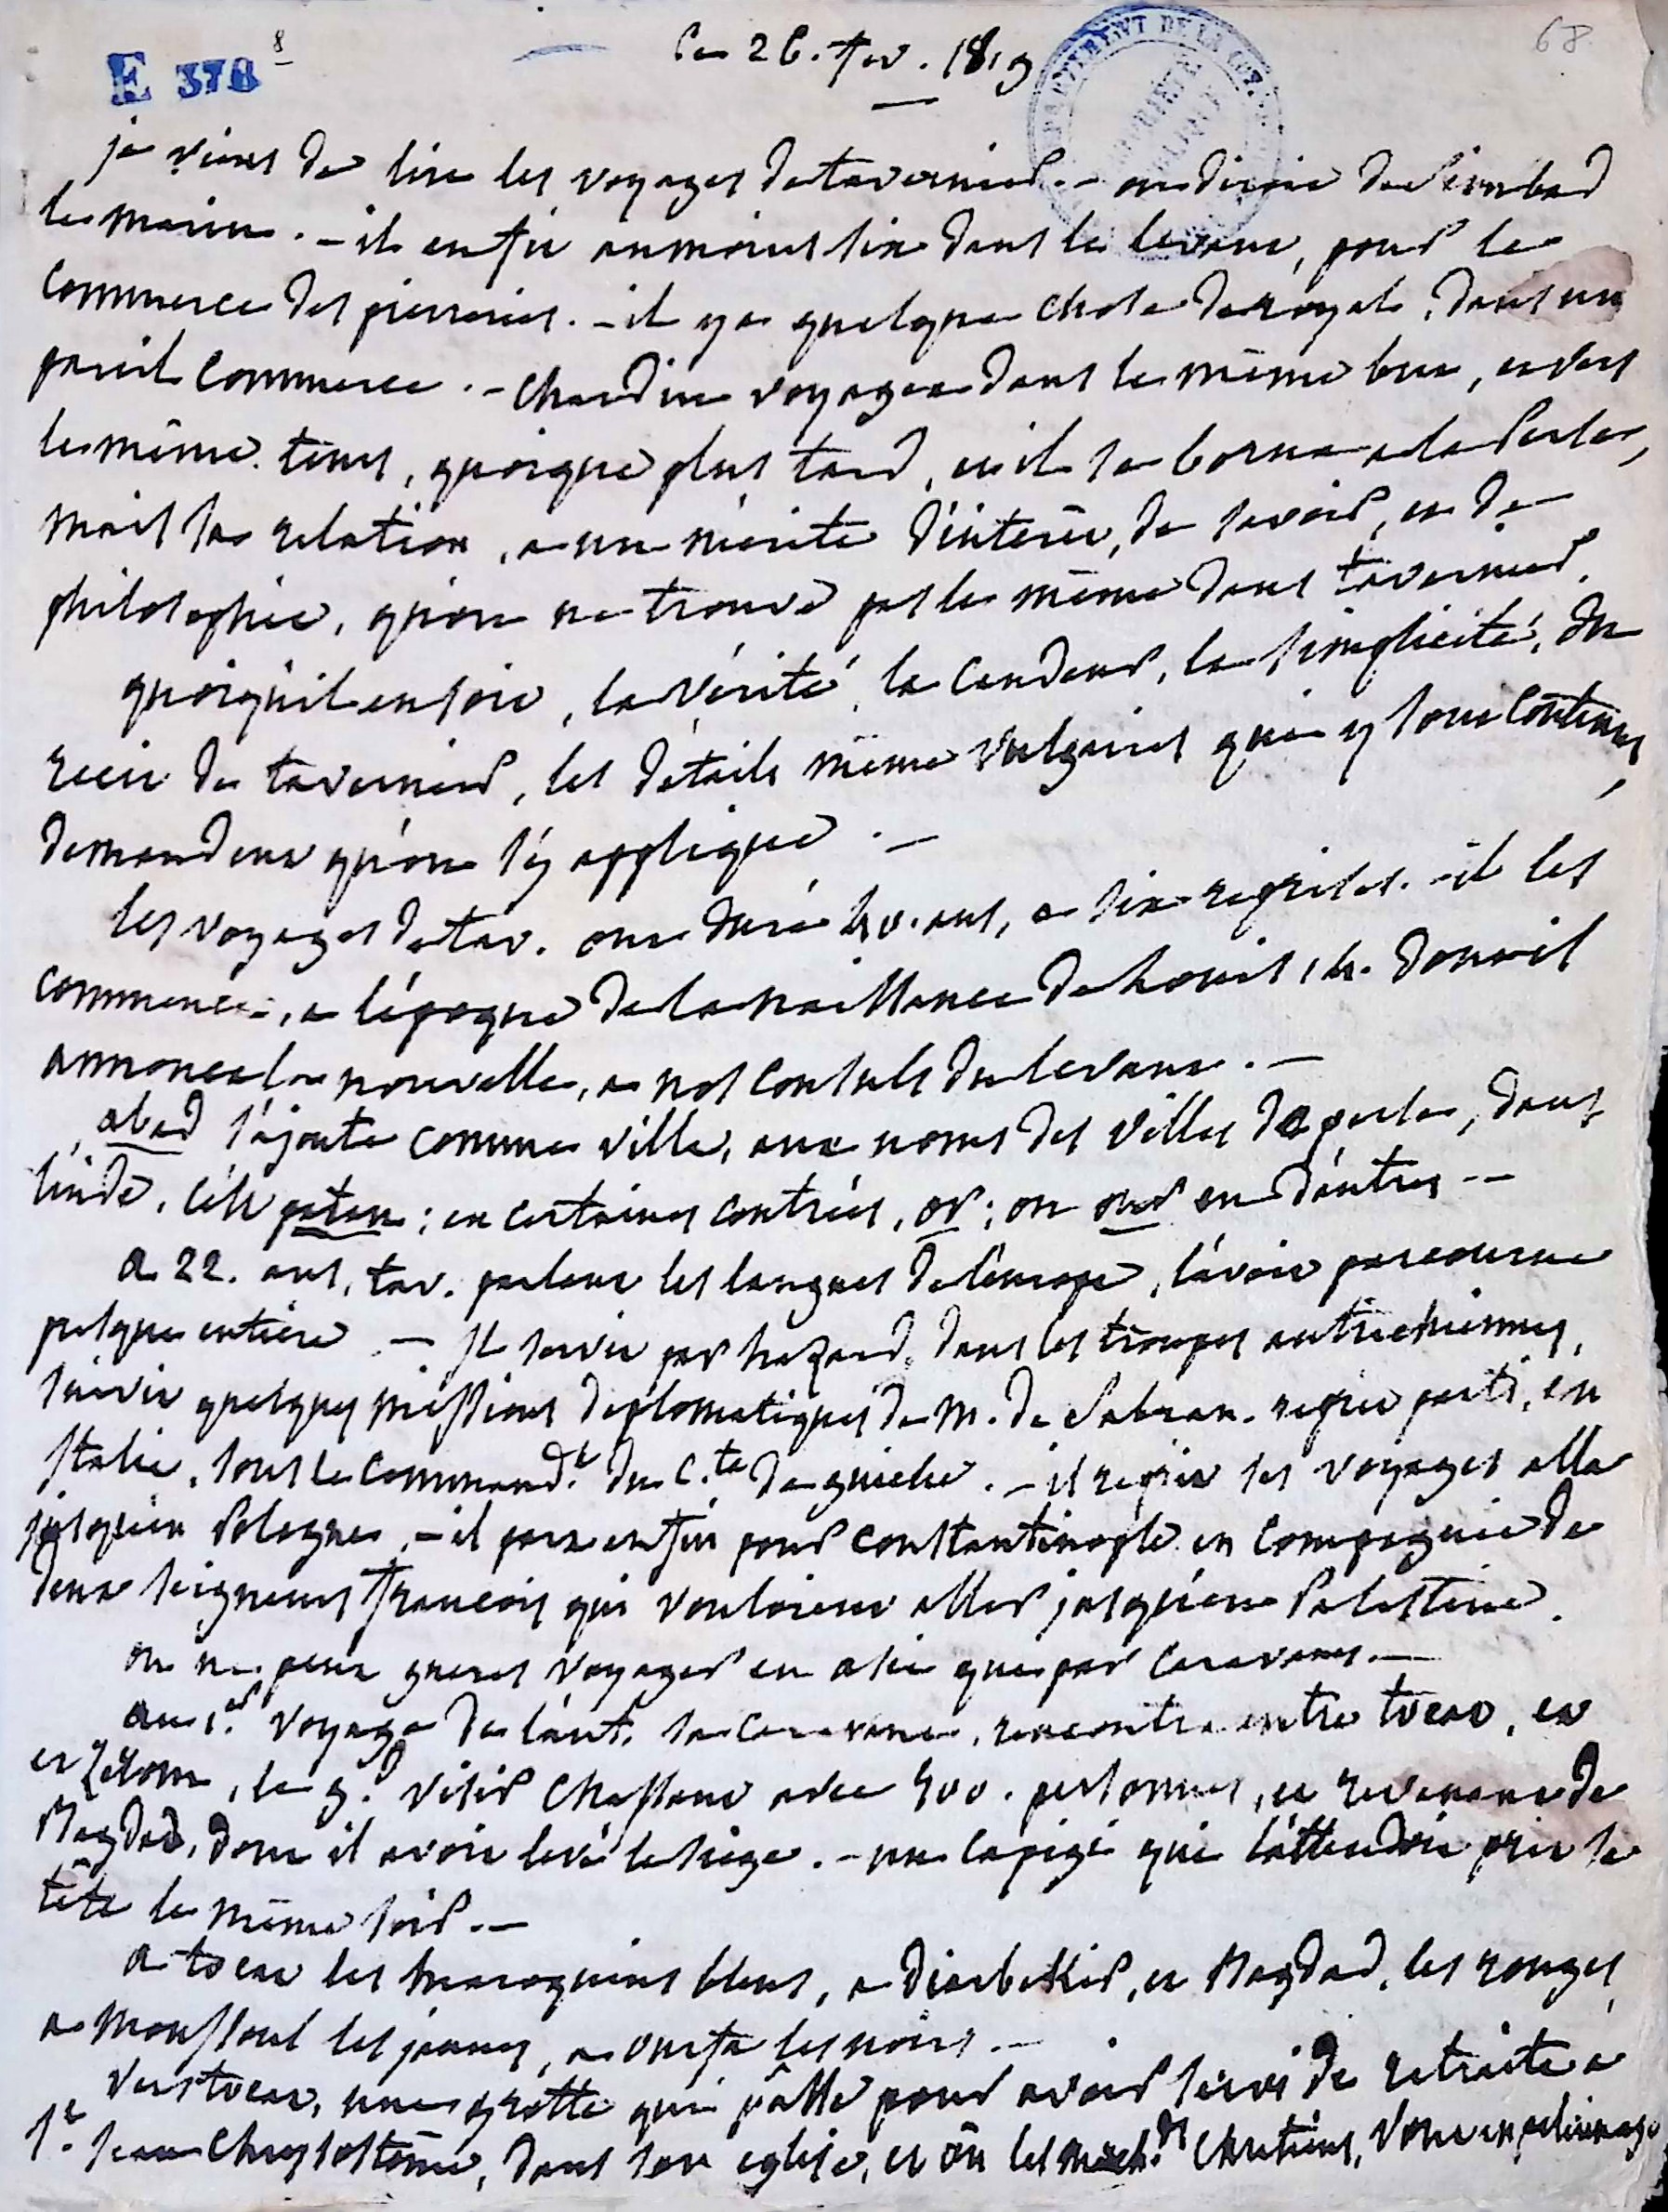 E 378 8
le 26. fev. 1819
68
je viens de lire les voyages de tavernier. - on diroit de Simbad
le marin. - il en fit au moins six dans le levant, pour le
commerce des pierreries. - il y a quelque chose de royal, dans un
pareil commerce. - Chardin voyagea dans le même but, et vers
le même tems, quoique plus tard, et il se borna a la Perse,
mais sa relation, a un mérite d'intérêt, de savoir, et de
philosophie, qu'on ne trouve pas le même dans tavernier.
quoiqu'il en soit, la vérité, la candeur, la simplicité, du
recit de tavernier, les détails même vulgaires qui y sont contenus,
demandent qu'on s'y applique. -
les voyages de tav. ont duré 40. ans, a six reprises. - il les
commence, a l'époque de la naissance de Louis 14. dont il
annonce la nouvelle, a nos consuls du levant. -
abad s'ajoute comme ville, aux noms des villes de perse, dans
l'inde, c'est patan ; en certaines contrées, or ; ou our en d'autres --
a 22. ans, tav. parlant les langues de l'europe, l'avoit parcourue
presque entière - Il servit par hazard, dans les troupes autrichiennes,
suivit quelques missions diplomatiques de m. de Sabran. reprit parti, en
Italie, sous le command.t du C.te de guiche. - il reprit ses voyages alla
jusqu'en Pologne, - il part enfin pour constantinople en compagnie de
deux seigneurs françois qui vouloient aller jusqu'en Palestine.
on ne peut gueres voyager en asie que par caravanes. -
au 1.er voyage de l'aut. sa caravane, rencontra entre tocat, et
erzerom, le g.d visir Chassant avec 400. personnes, et revenant de
Bagdad, dont il avoit levé le siège. - un capigi qui l'attendoit prit sa
tête le même soir. -
a tocat les maroquins bleus, a diarbekir, et Bagdad, les rouges,
a moussoul les jaunes, a ourfa les noirs. -
vers tocat, une grotte qui passe pour avoir servi de retraite a
S.t Jean Chrysostôme, dans son eglise, et où les march.ds chretiens, vont en pelerinage